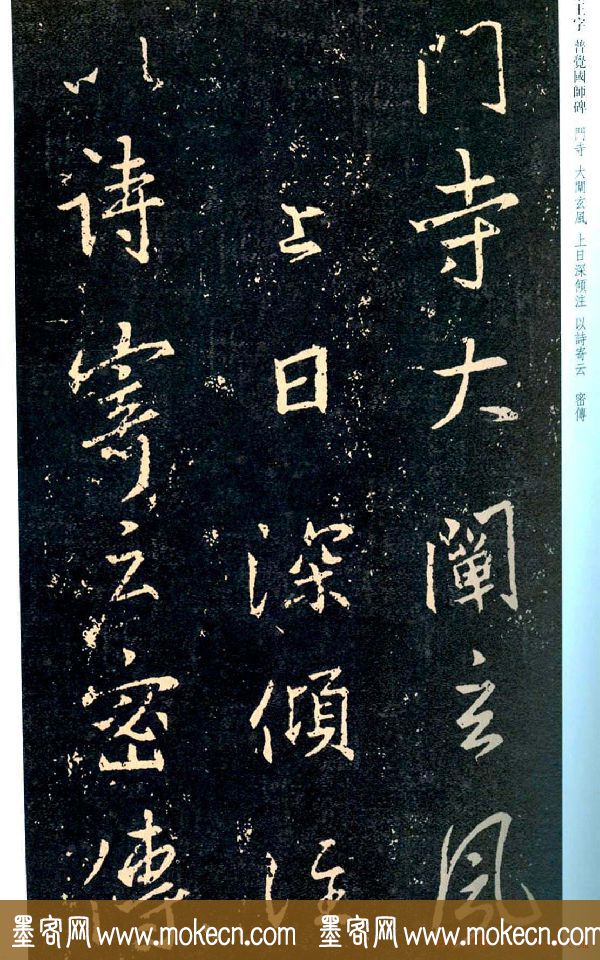 王字 普覺國師碑 門寺 大闡玄風 上日深傾注 以詩寄云 密傳
門寺大闡玄風
上日深傾注
以詩寄云密傳
墨客网 www.mokecn.com 墨客网 www.mokecn.com